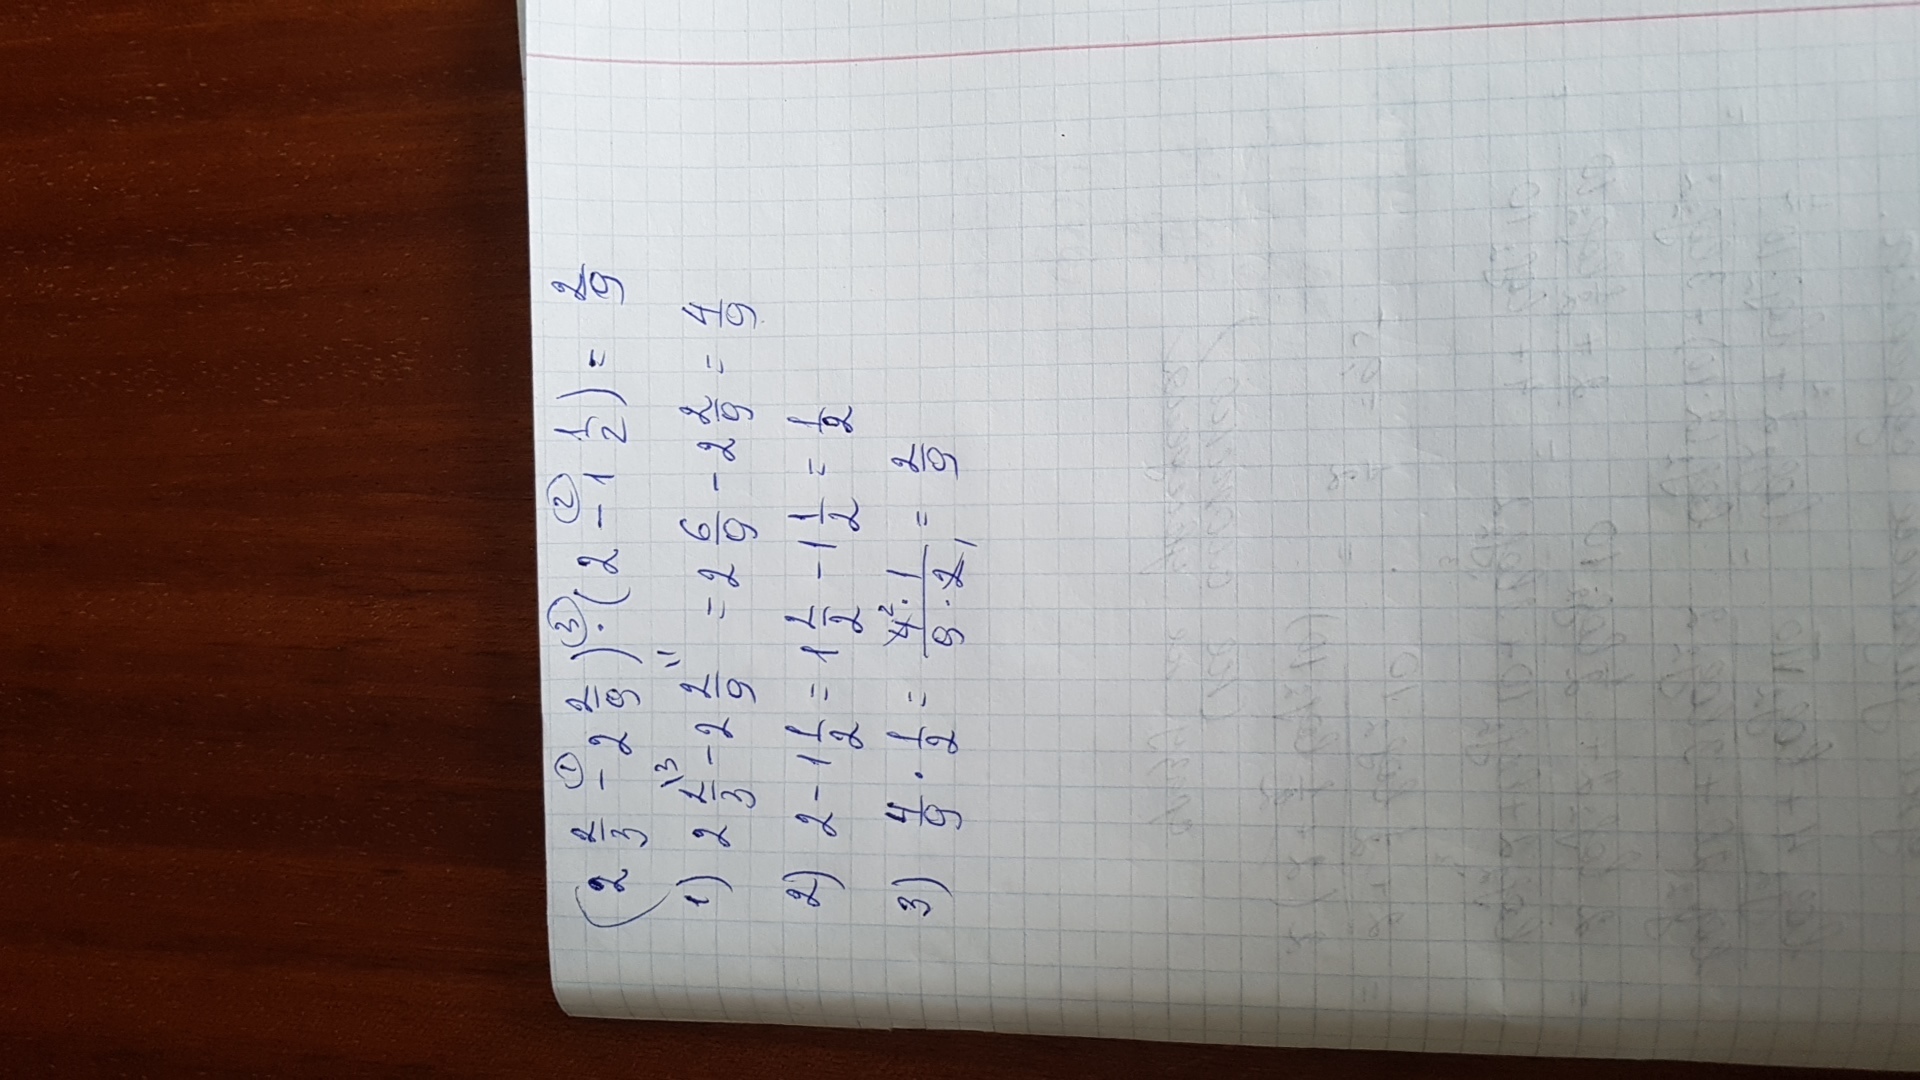 (2 2/3 ①- 2 2/9) ③· (2 ②- 1 1/2) = 2/9
1) 2 2/3 \3 - 2 2/9 \1 = 2 6/9 - 2 2/9 = 4/9
2) 2 - 1 1/2 = 1 2/2 - 1 1/2 = 1/2
3) 4/9 · 1/2 = 4² · 1 / 9 · 2₁ = 2/9